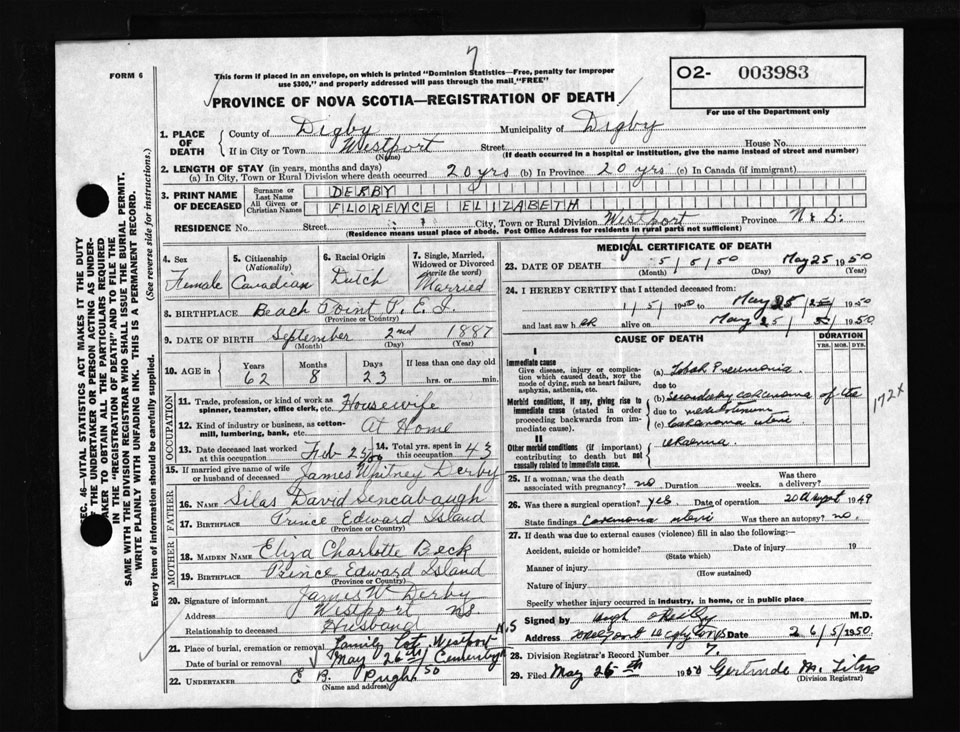 7
FORM 6
This form if placed in an envelope, on which is printed "Dominion Statistics—Free, penalty for improper
use $300," and properly addressed will pass through the mail "FREE"
O2- 003983
For use of the Department only
PROVINCE OF NOVA SCOTIA—REGISTRATION OF DEATH
SEC. 46—VITAL STATISTICS ACT MAKES IT THE DUTY
OF THE UNDERTAKER OR PERSON ACTING AS UNDER-
TAKER TO OBTAIN ALL THE PARTICULARS REQUIRED
IN THE "REGISTRATION OF DEATH" AND TO FILE THE
SAME WITH THE DIVISION REGISTRAR WHO SHALL ISSUE THE BURIAL PERMIT.
WRITE PLAINLY WITH UNFADING INK. THIS IS A PERMANENT RECORD.
Every item of information should be carefully supplied. (See reverse side for instructions.)
1. PLACE OF DEATH County of Digby Municipality of Digby
If in City or Town Westport Street House No.
(Name) (If death occurred in a hospital or institution, give the name instead of street and number)
2. LENGTH OF STAY (in years, months and days)
(a) In City, Town or Rural Division where death occurred 20 yrs (b) In Province 20 yrs (c) In Canada (if immigrant)
3. PRINT NAME OF DECEASED Surname or Last Name DERBY
All Given or Christian Names FLORENCE ELIZABETH
RESIDENCE No. Street City, Town or Rural Division Westport Province N.S.
(Residence means usual place of abode. Post Office Address for residents in rural parts not sufficient)
4. Sex Female
5. Citizenship (Nationality) Canadian
6. Racial Origin Dutch
7. Single, Married, Widowed or Divorced (write the word) Married
8. BIRTHPLACE Beach Point P.E.I.
(Province or Country)
9. DATE OF BIRTH September 2nd 1887
(Month) (Day) (Year)
10. AGE in Years 62 Months 8 Days 23 If less than one day old hrs. or min.
OCCUPATION
11. Trade, profession, or kind of work as spinner, teamster, office clerk, etc. Housewife
12. Kind of industry or business, as cotton-mill, lumbering, bank, etc. At Home
13. Date deceased last worked at this occupation Feb 25/50
14. Total yrs. spent in this occupation 43
15. If married give name of wife or husband of deceased James Whitney Derby
FATHER
16. NAME Silas David Sencabaugh
17. BIRTHPLACE Prince Edward Island
(Province or Country)
MOTHER
18. MAIDEN NAME Eliza Charlotte Beck
19. BIRTHPLACE Prince Edward Island
(Province or Country)
20. Signature of informant James W Derby
Address Westport N.S.
Relationship to deceased Husband
21. Place of burial, cremation or removal Family Lot Westport N.S
Date of burial or removal May 26th Cemetery
22. UNDERTAKER E B. Pugh 50
(Name and address)
MEDICAL CERTIFICATE OF DEATH
23. DATE OF DEATH 5/5/50 May 25 1950
(Month) (Day) (Year)
24. I HEREBY CERTIFY that I attended deceased from:
1/5/1950 to May 25 1950
and last saw her alive on May 25 1950
CAUSE OF DEATH
DURATION
YRS. MOS. DYS.
I
Immediate cause
Give disease, injury or complication which caused death, not the mode of dying, such as heart failure, asphyxia, asthenia, etc.
(a) Lobar Pneumonia
due to
Morbid conditions, if any, giving rise to immediate cause (stated in order proceeding backwards from immediate cause).
(b) Secondary carcinoma of the mediastinum
due to
(c) Carcinoma uteri
172X
II
Other morbid conditions (if important) contributing to death but not causally related to immediate cause.
25. If a woman, was the death associated with pregnancy? no. Duration weeks. Was there a delivery?
26. Was there a surgical operation? yes Date of operation 20 August 1949
State findings Carcinoma uteri Was there an autopsy? no.
27. If death was due to external causes (violence) fill in also the following:—
Accident, suicide or homicide? Date of injury 19
(State which)
Manner of injury
(How sustained)
Nature of injury
Specify whether injury occurred in industry, in home, or in public place
Signed by Hugh M.D.
Address Date 26/5/1950.
28. Division Registrar's Record Number 7.
29. Filed May 26th 1950 Gertrude M. Titus
(Division Registrar)